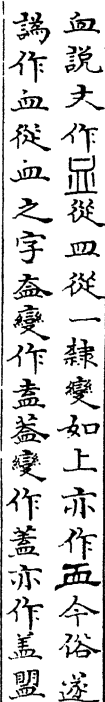 血說文作從皿從一隸變如上亦作今俗遂
譌作血從血之字盇變作盍葢變作蓋亦作盖盟